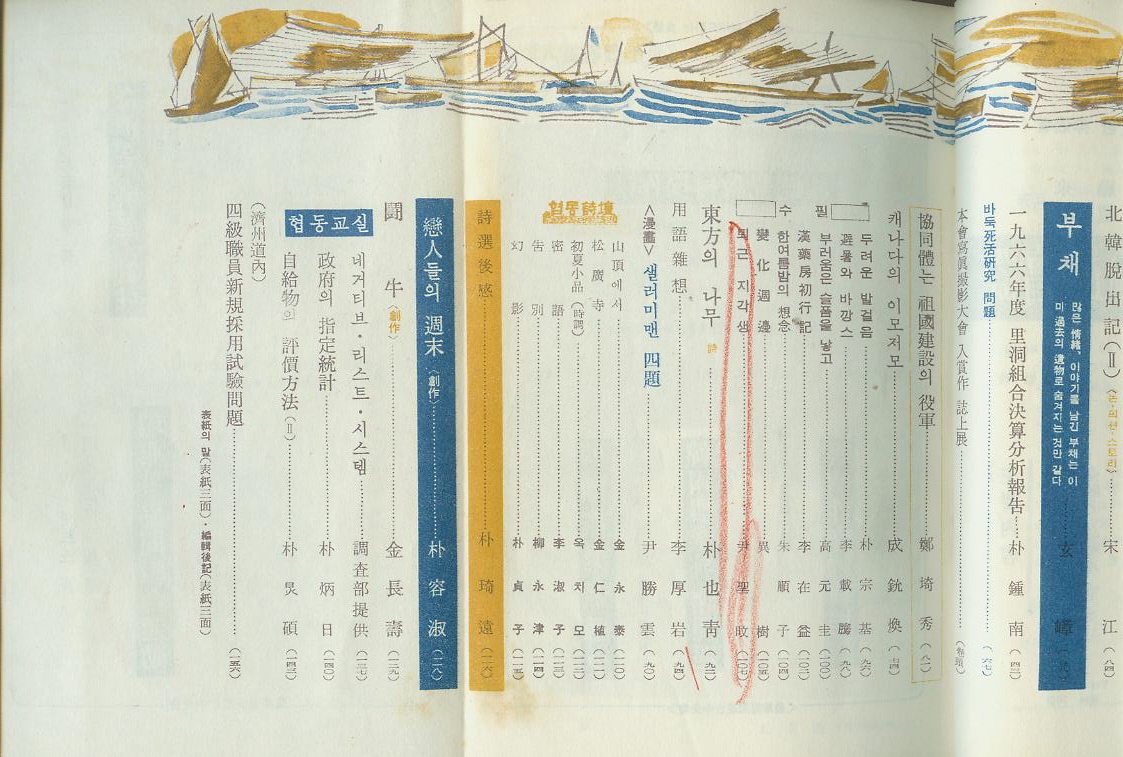 北韓脫出記(Ⅱ)〈논·픽션·스토리〉 宋江 (八四)
부채 많은 情緖, 이야기를 남긴 부채는 이미 過去의 遺物로 숨겨지는 것만 같다 玄
一九六六年度 里洞組合決算分析報告 朴鍾南 (四二)
바둑死活硏究 問題 (六七)
本會寫眞撮影大會 入賞作 誌上展 (卷頭)
協同體는 祖國建設의 役軍 鄭埼秀 (八一)
캐나다의 이모저모 成銃煥 (七四)
수필
두려운 발걸음 朴宗基 (九六)
避暑와 바캉스 李載騰 (九八)
부러움은 슬픔을 낳고 高元圭 (一〇〇)
漢藥房初行記 李在益
한여름밤의 想念 朱順子 (一〇四)
變化週邊 異樹 (一〇五)
퇴근 지각생 尹聖 (一〇七)
東方의 나무 詩 朴也靑 (九二)
用語雜想 李厚岩 (九四)
〈漫畫〉 샐러리맨 四題 尹勝雲 (九〇)
협동詩壇
山頂에서 金永泰 (一一〇)
松廣寺 金仁植
初夏小品(時調) 옥치모
密語 李淑子 (一一三)
告別 柳永津 (一一四)
幻影 朴貞子 (一一五)
詩選後感 朴琦遠 (一一六)
戀人들의 週末〈創作〉 朴容淑 (一一八)
鬪牛〈創作〉 金長壽 (一二九)
협동교실
네거티브·리스트·시스템 調査部提供 (一三七)
政府의 指定統計 朴炳日 (一四〇)
自給物의 評價方法(Ⅱ) 朴炅碩 (一四三)
(濟州道內)
四級職員新規採用試驗問題 (一五六)
表紙의 말(表紙三面)·編輯後記(表紙三面)